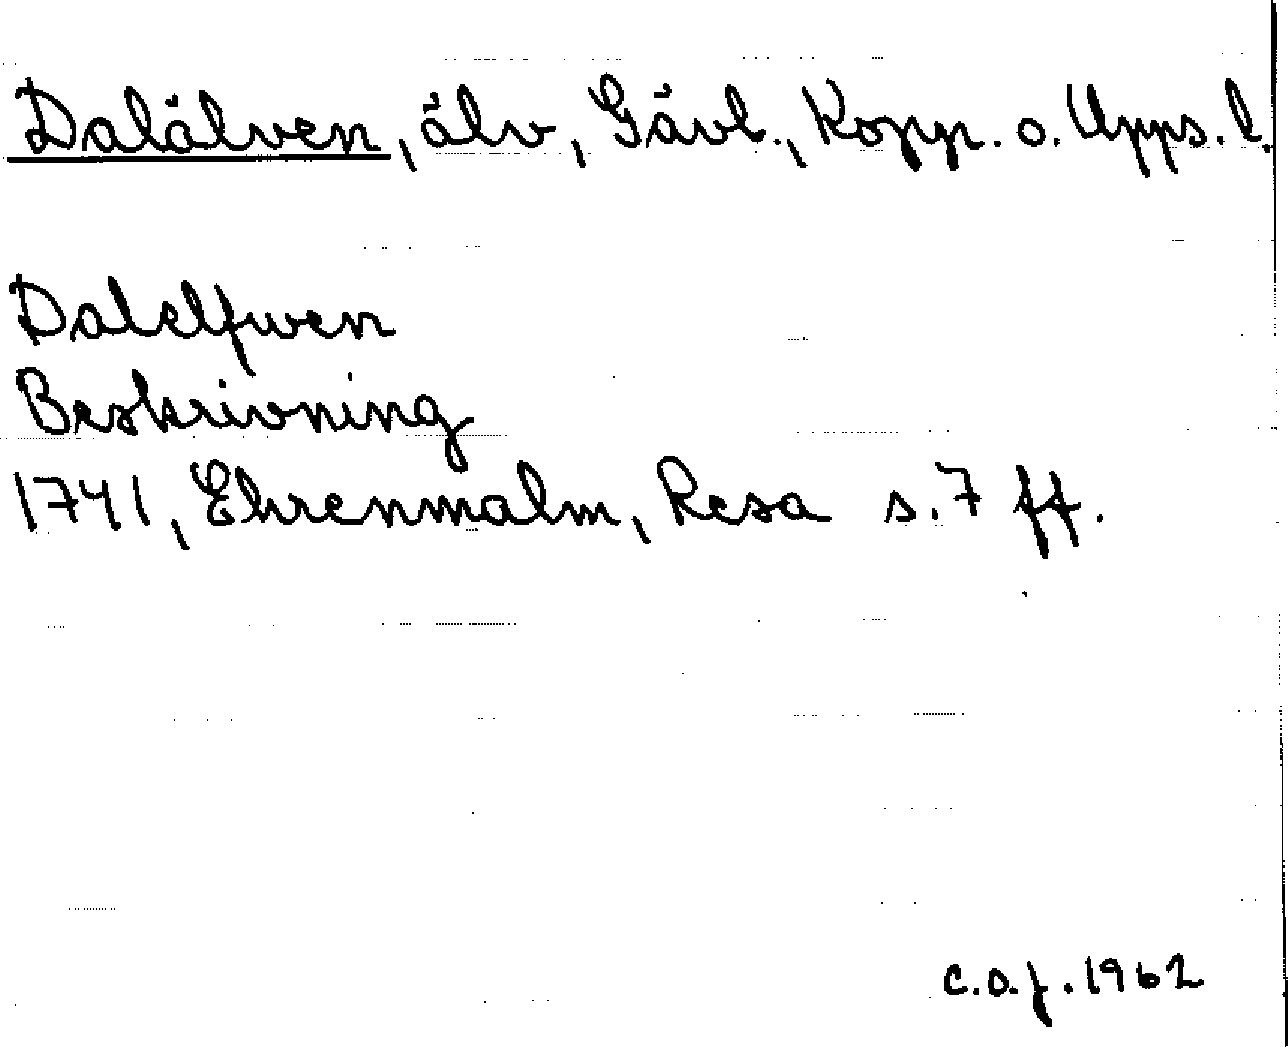 Dalälven, älv, Gävl., Kopp. o. Upps. l.
Dalelfwen
Beskrivning
1741, Ehrenmalm, Resa s. 7 ff.
C.O.f. 1962